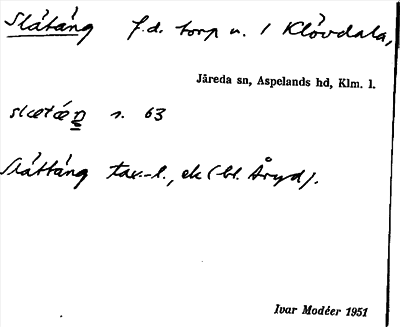 Slåtång f.d. torp u. 1 Klövdala,
Järeda sn, Aspelands hd, Klm. l.
s. 63
Slåttång tax.-l., ek (bl. Åryd).
Ivar Modéer 1951